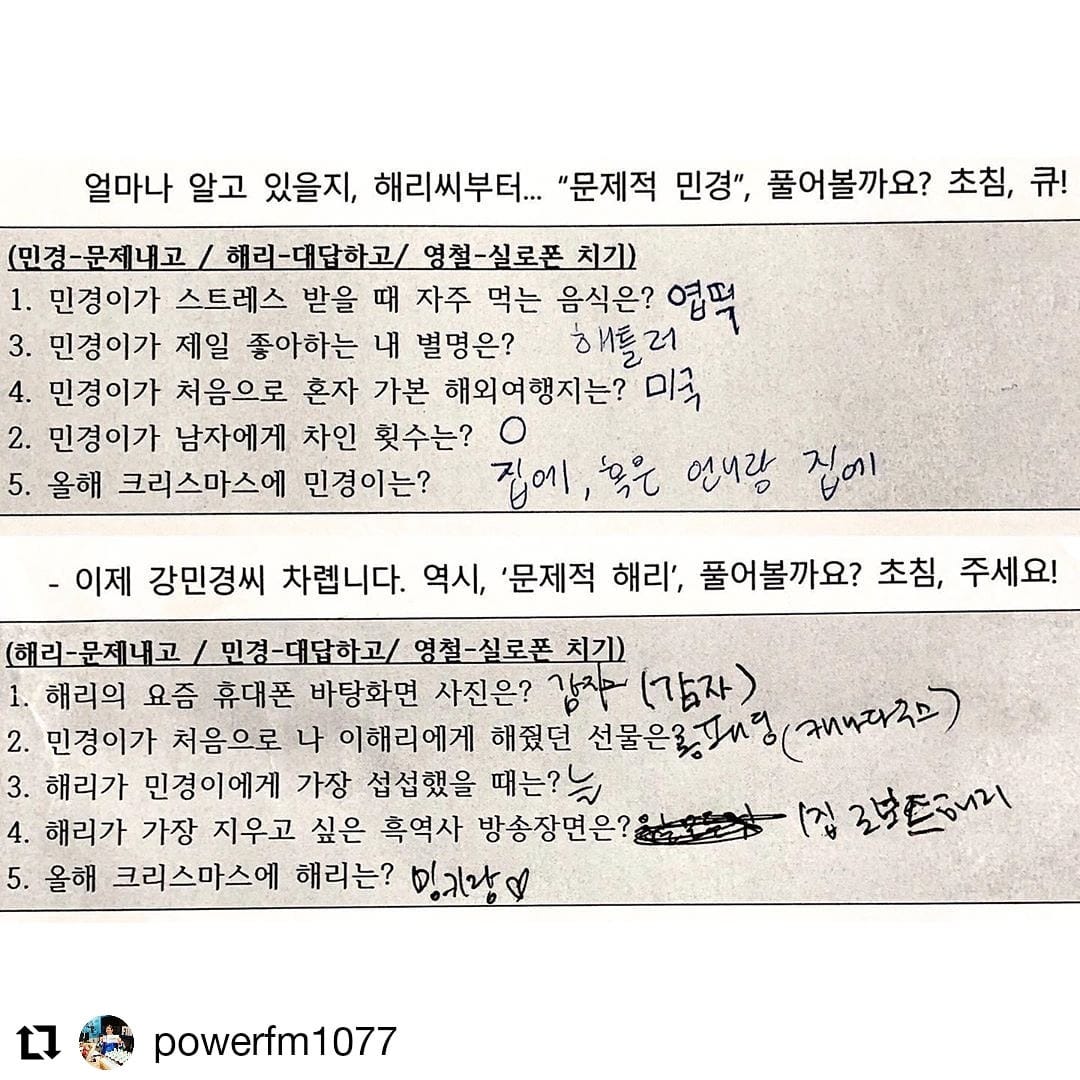 얼마나 알고 있을지, 해리씨부터... “문제적 민경”, 풀어볼까요? 초침, 큐!
(민경-문제내고 / 해리-대답하고/ 영철-실로폰 치기)
1. 민경이가 스트레스 받을 때 자주 먹는 음식은? 엽떡
3. 민경이가 제일 좋아하는 내 별명은? 해틀러
4. 민경이가 처음으로 혼자 가본 해외여행지는? 미국
2. 민경이가 남자에게 차인 횟수는? 0
5. 올해 크리스마스에 민경이는? 집에, 혹은 언니랑 집에
- 이제 강민경씨 차렙니다. 역시, ‘문제적 해리’, 풀어볼까요? 초침, 주세요!
(해리-문제내고 / 민경-대답하고/ 영철-실로폰 치기)
1. 해리의 요즘 휴대폰 바탕화면 사진은? 감자 (감자)
2. 민경이가 처음으로 나 이해리에게 해줬던 선물은 롱패딩 (캐나다구스)
3. 해리가 민경이에게 가장 섭섭했을 때는? 늘
4. 해리가 가장 지우고 싶은 흑역사 방송장면은? 1집 로보트해리
5. 올해 크리스마스에 해리는? 밍키랑♡
powerfm1077